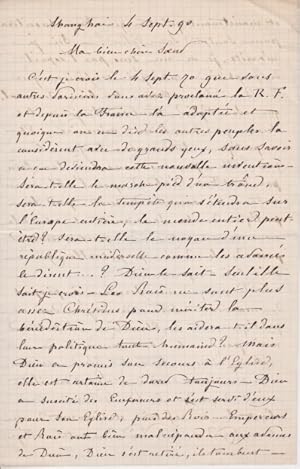 Shanghai 4 Sept. 90
Ma bien chère Sœur
C'est je crois le 4 Sept. 70 que vous
autres Parisiens vous avez proclamé la R. F.
et depuis la France l'a adoptée et
quoique on en dise les autres peuples la
considèrent avec de grands yeux, sans savoir
ce que deviendra cette nouvelle invention
sera-t-elle le marche pied d'un trône,
sera-t-elle la tempête qui s'étendra sur
l'Europe entière, le monde entier peut
être? sera-t-elle le noyau d'une
république universelle comme les
le disent..? Dieu le sait Seul
sait je crois - Les Rois ne sont plus
assez Chrétiens pour mériter la
bénédiction de Dieu, les aidera t-il dans
leur politique tout humaine? Mais
Dieu a promis son secours à l'Eglise,
elle est certaine de durer toujours - Dieu
a suscité des Empereurs et s'est servi d'eux
pour son Eglise, puis des Rois - Empereurs
et Rois ont bien mal répondu aux avances
de Dieu, Dieu s'est retiré, ils tombent -